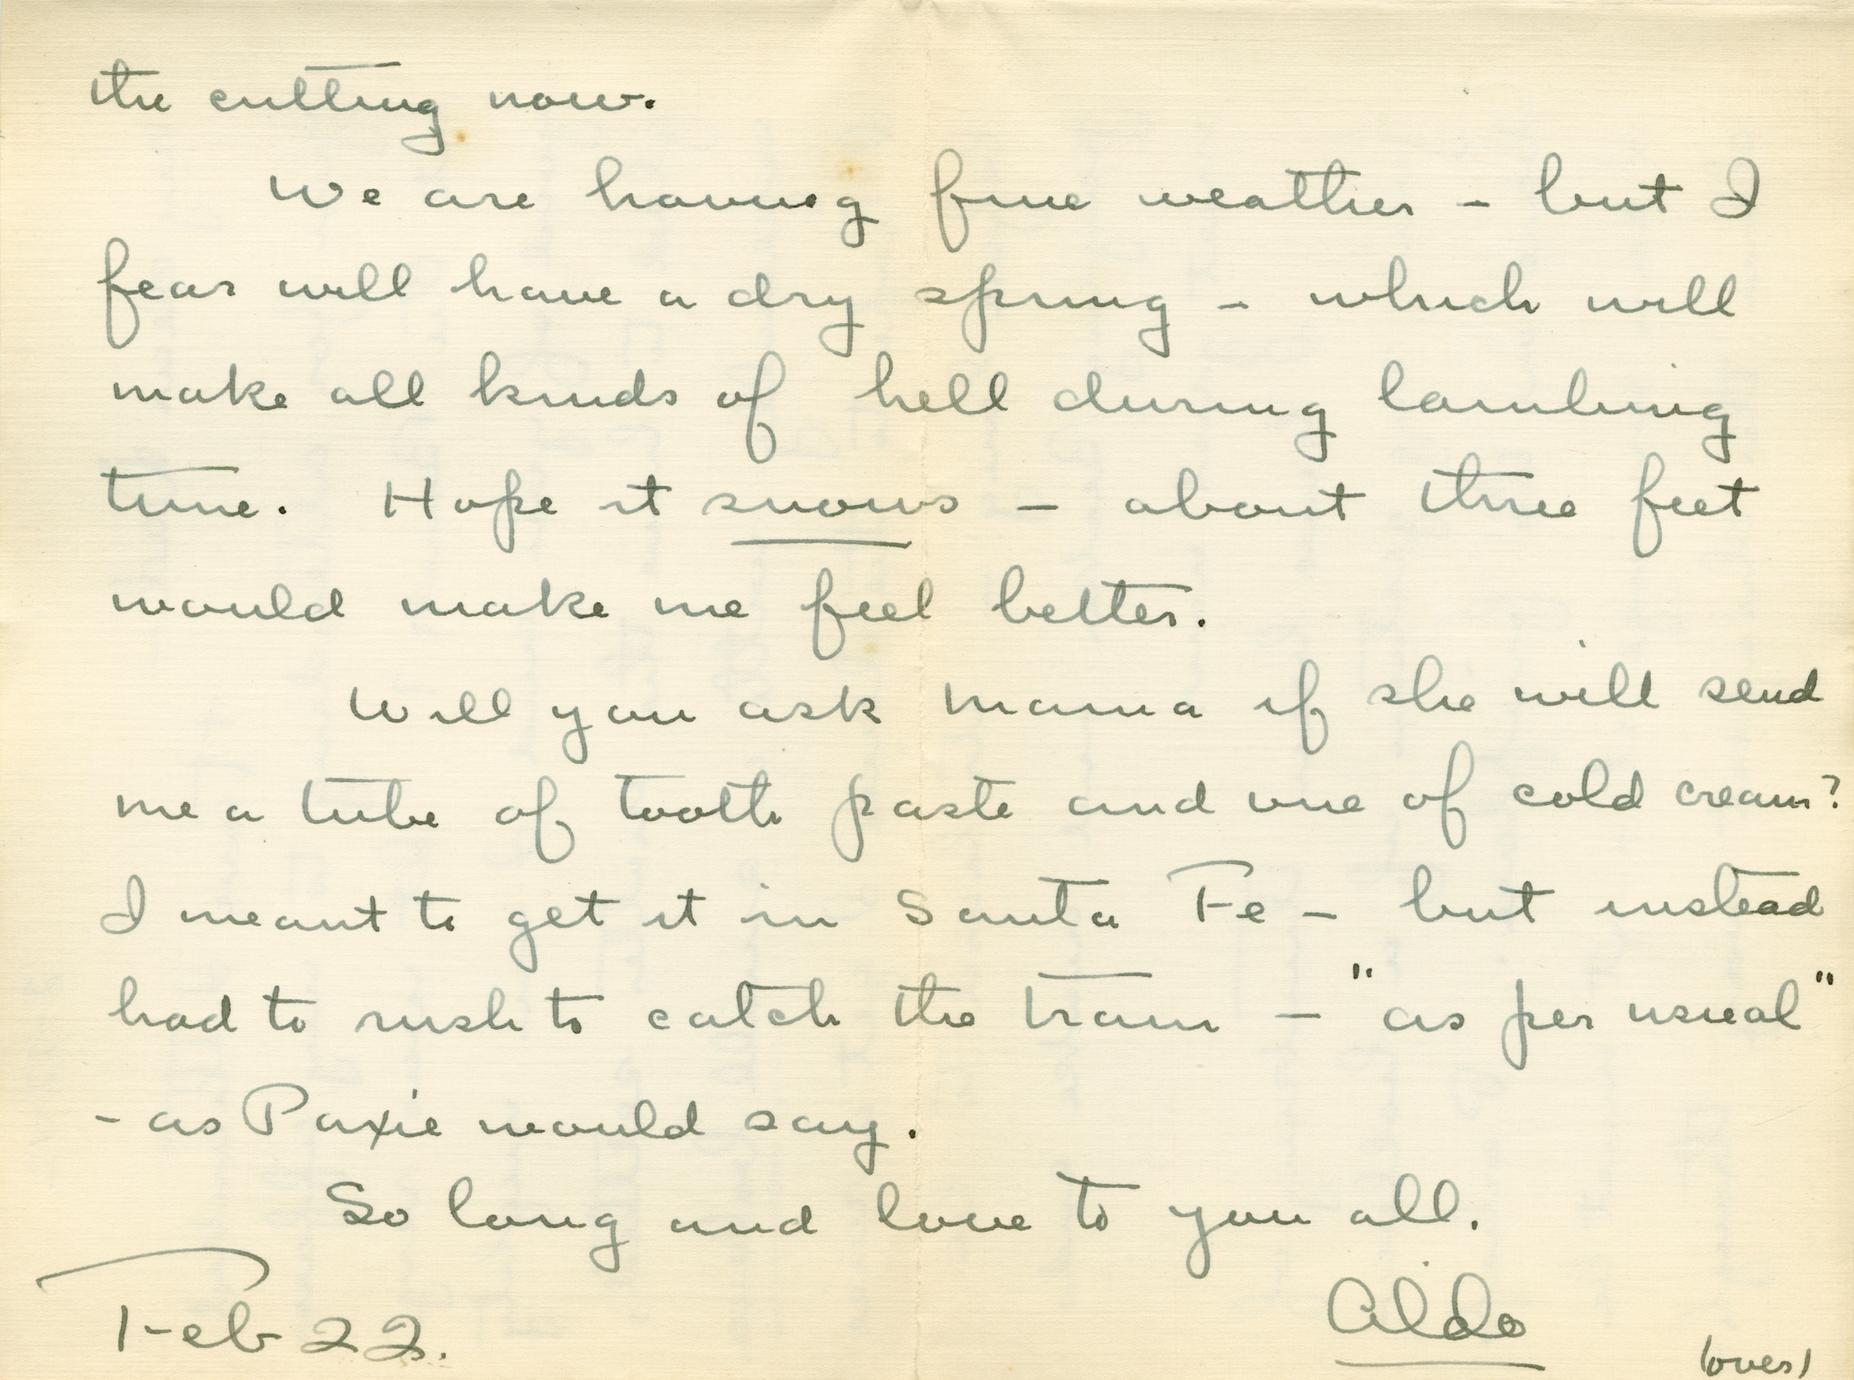 the cutting now.
We are having fine weather - but I
fear will have a dry spring - which will
make all kinds of hell during lambing
time. Hope it snows - about three feet
would make me feel better.
Will you ask Mama if she will send
me a tube of tooth paste and one of cold cream?
I meant to get it in Santa Fe - but instead
had to rush to catch the train - "as per usual"
- as Paxie would say.
So long and love to you all.
Aldo
Feb 22.
(over)